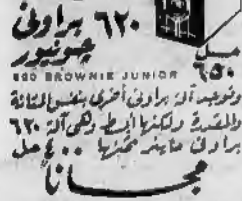 ٦٢٠ براونى
چونيور
٦٥٠
620 BROWNIE JUNIOR
وتوجد آلة براونى أخرى بنفس المتانة
والمقدرة ولكنها أبسط وهى آلة ٦٢٠
براونى
مجـــاناً